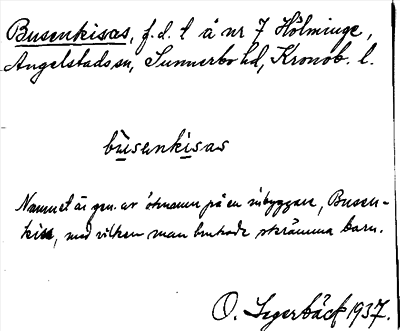 Busenkisas, f.d. t å nr 7 Hölminge,
Angelstads sn, Sunnerbo hd, Kronob. l.
busenkisas
Namnet är gen. av öknamn på en inbyggare, Busen-
kise, med vilken man brukade skrämma barn.
O. Segerbäck 1937.